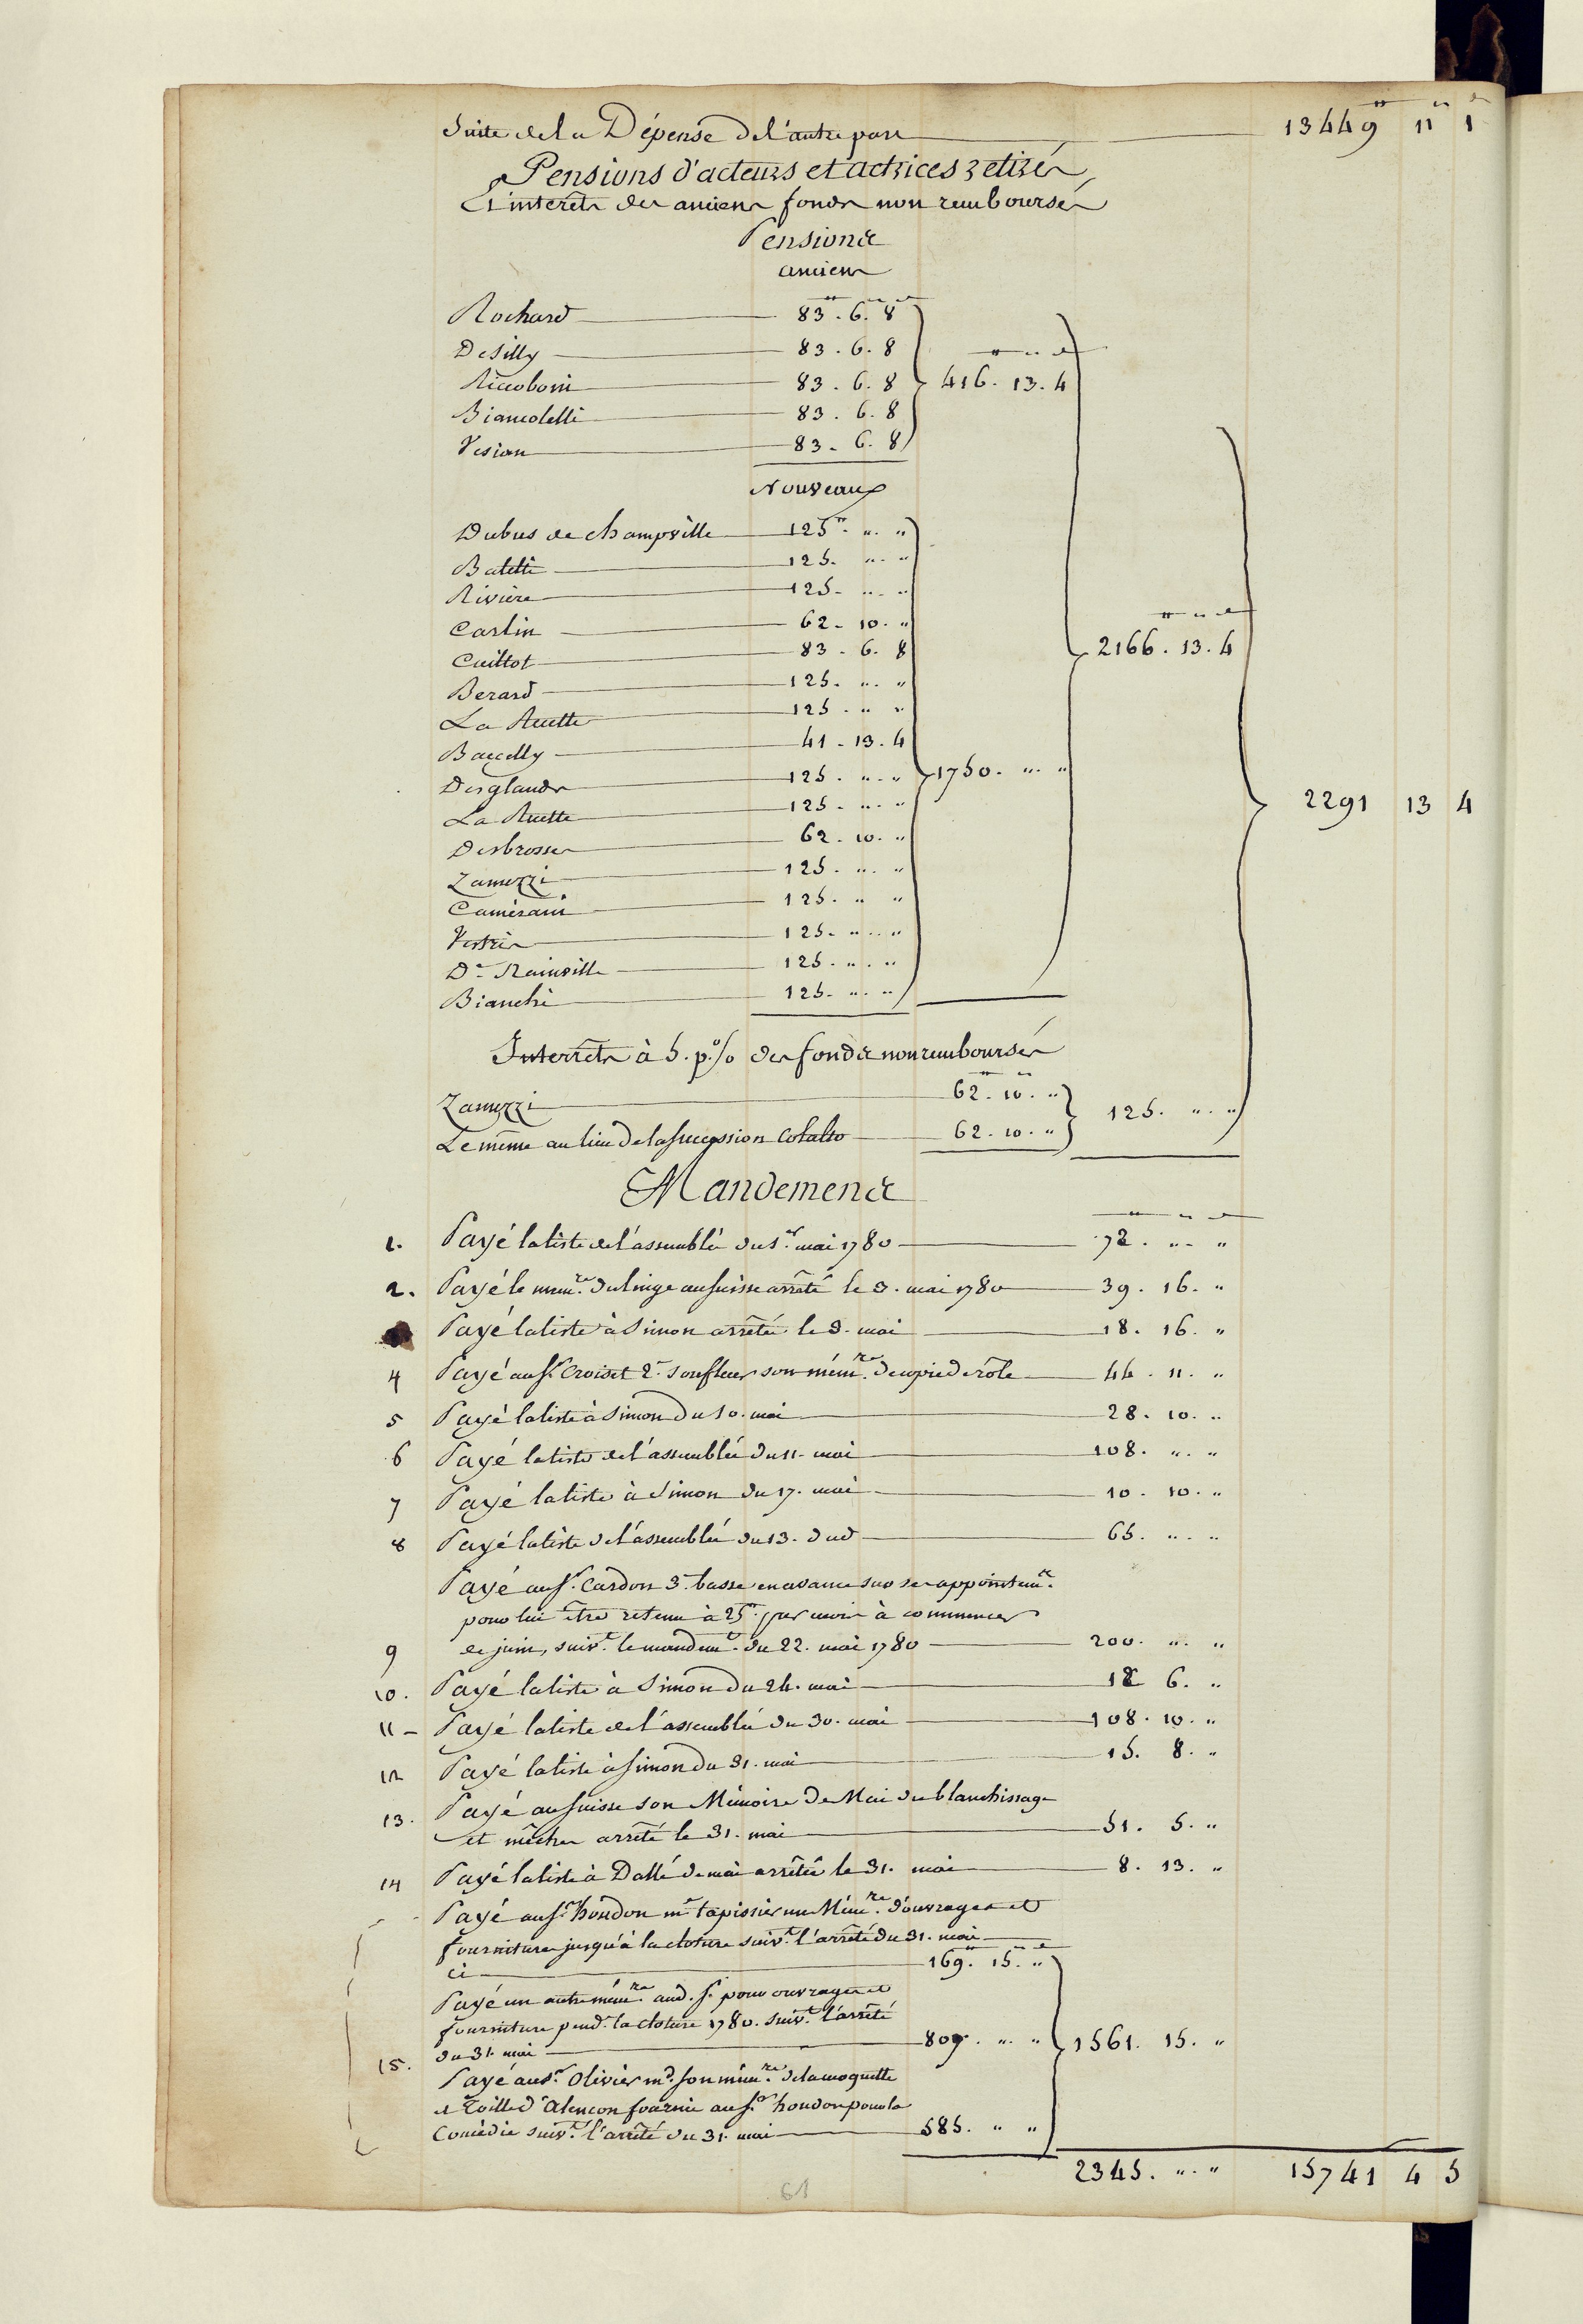 Suite de la Dépense de l'autre part 13449 11 1
Pensions d'acteurs et actrices retirés
Et interêts des anciens fonds non remboursés
Pensions
anciens
Rochard 83. 6. 8
Desilly 83. 6. 8
Riccoboni 83. 6. 8 416. 13. 4
Biancolelli 83. 6. 8
Vesian 83. 6. 8
Nouveaux
Dubus de champville 125tt. ". "
Baletti 125. ". "
Riviere 125. ". "
Carlin 62. 10. "
Cuillot 83. 6. 8 2166. 13. 4
Berard 125. ". "
La Ruette 125. ". "
Baccelly 41. 13. 4
Desglands 125. ". " 1750. ". " 2291 13 4
La Ruette 125. ". "
Desbrosses 62. 10. "
Zanuzzi 125. ". "
Camérani 125. ". "
Vestris 125. ". "
De. Rainville 125. ". "
Bianchi 125. ". "
Interrêts à 5. p.% des fonds non remboursés
Zanuzzi 62. 10. " 125. ". "
Le même au lieu de la succession Colalto 62. 10. "
Mandemens
1. Payé la liste de l'assemblée du 1er. mai 1780 72. ". "
2. Payé le mém.re du linge au suisse arrêté le 3. mai 1780 39. 16. "
Payé la liste à Simon arrêtée le 3. mai 18. 16. "
4 Payé au Sr. Croiset 2e. soufleur son mém.re de copie de rôle 44. 11. "
5 Payé la liste à Simon du 10. mai 28. 10. "
6 Payé la liste de l'assemblée du 11. mai 108. ". "
7 Payé la liste à Simon du 17. mai 10. 10. "
8 Payé la liste de l'assemblée du 13. dud 65. ". "
Payé au Sr. Cardon 3e. basse en avance sur ses appointem.s
pour lui être retenu à 25tt. par mois à commencer
9 de juin, suiv.t le mandem.t du 22. mai 1780 200. ". "
10. Payé la liste à Simon du 24. mai 12 6. "
11 - Payé la liste de l'assemblée du 30. mai 108. 10. "
12 Payé la liste à Simon du 31. mai 15. 8. "
13. Payé au suisse son Mémoire de Mai de blanchissage
et mêches arrêté le 31. mai 51. 5. "
14 Payé la liste à Dallé de mai arrêtée le 31. mai 8. 13. "
Payé au Sr. houdon md. tapissier un Mém.re d'ouvrages et
fournitures jusqu'à la cloture suiv.t l'arrêté du 31. mai
ci 169. 15. "
Payé un autre mém.re aud. Sr. pour ouvrages et
fourniture pend.t la cloture 1780. suiv.t l'arrêté
15. du 31. mai 807. ". " 1561. 15. "
Payé au Sr. Olivier md. son mém.re de la moquette
et Toille d'Alençon fournie au Sr. houdon pour la
Comédie suiv.t l'arrêté du 31. mai 585. ". "
2345. ". " 15741 4 5
61